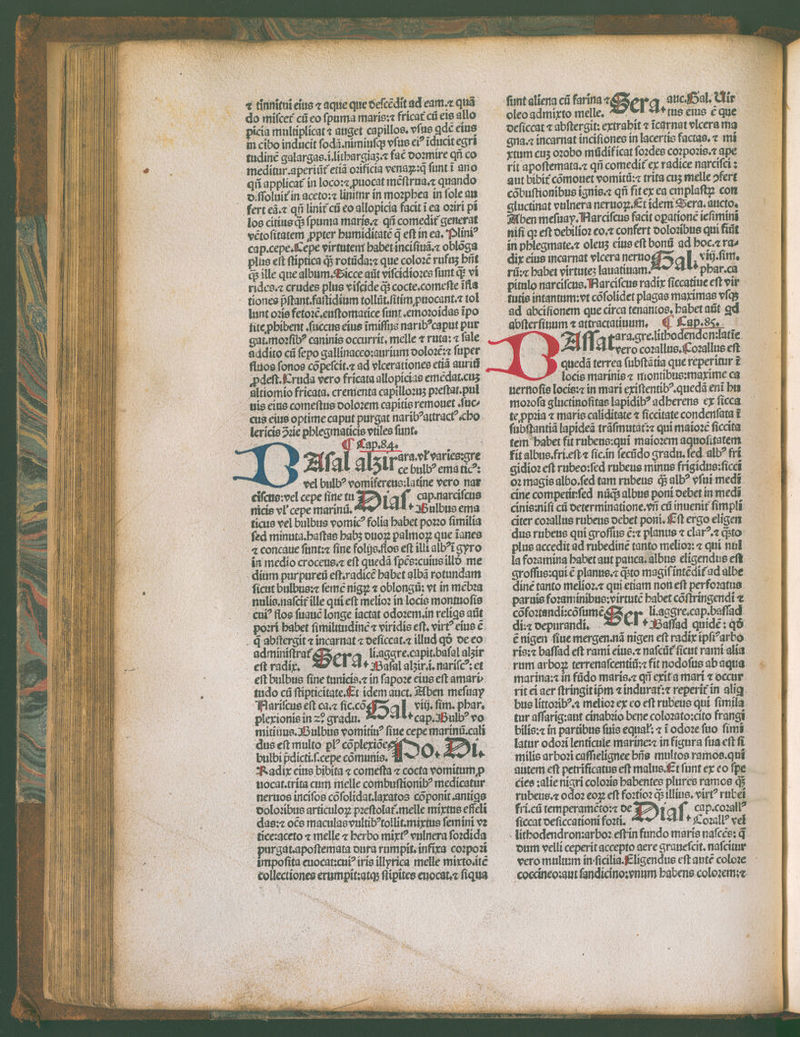 ⁊ tinnitui eius ⁊ aque que descēdit ad eam.⁊ quā
do miscet᷑ cū eo spuma maris:⁊ fricat᷑ cū eis allo
picia multiplicat ⁊ auget capillos. vsus qdē eius
in cibo inducit sodā.nimiusq3 vsus ei⁹ īducit egri
tudinē galargas.i.lithargiā3.⁊ fac̄ dormire qn̄ co
meditur.aperiūt᷑ etiā orificia venaꝝ:q̄ sunt ī ano
qn̄ applicat᷑ in loco:⁊ ꝓuocat mēstrua.⁊ quando
dissoluit᷑ in aceto:⁊ linitur in morphea in sole au
fert eā.⁊ qn̄ linit᷑ cū eo allopicia facit ī ea oriri pi
los citius q̄3 spuma maris.⁊ qn̄ comedit᷑ generat
vētositatem ꝓpter humiditatē q̄ est in ea. Plini⁹
cap.cepe.Cepe virtutem habet incisiuā.⁊ oblōga
plus est stiptica q̄3 rotūda:⁊ que colorē rufu3 hn̄t
q̄3 ille que album.Sicce aūt viscidiores sunt q̄3 vi
rides.⁊ crudes plus viscide q̄3 cocte.comeste īfla
tiones p̄stant.fastidium tollūt.sitim ꝓuocant.⁊ tol
lunt oris fetorē.eustomatice sunt.emoroidas īpo
site ꝓhibent.succus eius īmissus narib⁹caput pur
gat.morsib⁹ caninis occurrit. melle ⁊ ruta: ⁊ sale
addito cū sepo gallinacco:aurium dolorē:⁊ super
fluos sonos cōpescit.⁊ ad vlcerationes etiā auriū
ꝓdest.Cruda vero fricata allopicias emēdat.cu3
altiomio fricata. crementa capilloru3 prestat.pul
uis eius comestus dolorem capitis remouet .suc-
cus eius optime caput purgat narib⁹attract⁹.cho
lericis ꝯ̄rie phlegmaticis vtiles sunt.
¶ Cap.84.
BAsal alzir ara.vl᷑ varies:gre
ce bulb⁹ ema tic⁹:
vel bulb⁹ vomisereus:latine vero nar
ciscus:vel cepe sine tu
nicis vl᷑ cepe marinū. Dias. cap.narciscus
Bulbus ema
ticus vel bulbus vomic⁹ folia habet porro similia
sed minuta.hastas hab3 duoꝝ palmoꝝ que īanes
⁊ concaue sunt:⁊ sine folijs.flos est illi alb⁹ī gyro
in medio croceus.⁊ est quedā sp̄es:cuius illd̄ me
dium purpureū est.radicē habet albā rotundam
sicut bulbus:⁊ semē nigꝝ ⁊ oblongū: vt in mēbra
nulis.nascit᷑ ille qui est melior in locis montuosis
cui⁹ flos suauē longe iactat odorem.in reliqs aūt
porri habet similitudinē ⁊ viridis est. virt⁹ eius ē
q̄ abstergit ⁊ incarnat ⁊ desiccat.⁊ illud qd̄ de eo
administrat᷑
est radix. Sera. li.aggre.capit.basal alzir
Basal alzir.i.narisc⁹: et
est bulbus sine tunicis.⁊ in sapore eius est amari-
tudo cū stipticitate.Et idem auct. Aben mesuay
Nariscus est ca.⁊ sic.cō
plexionis in 2⁹ gradu. Gal. viij. sim. phar.
cap.Bulb⁹ vo
mitiuus.Bulbus vomitiu⁹ siue cepe marinū.cali
dus est multo pl⁹ cōplexiōe
bulbi p̄dicti.s.cepe cōmunis. ¶ Po. Di.
Radix eius bibita ⁊ comesta ⁊ cocta vomitum ꝓ
uocat.trita cum melle combustionib⁹ medicatur
neruos incisos cōsolidat.laxatos cōponit.antiqs
doloribus articuloꝝ prestolat᷑.melle mixtus effeli
das:⁊ oēs maculas vultib⁹tollit.mixtus semini vr
tice:aceto ⁊ melle ⁊ herbo mixt⁹ vulnera sordida
purgat.apostemata dura rumpit. infixa corpori
imposita euocat:cui⁹ iris illyrica melle mixto.itē
collectiones erumpit:atq3 stipites euocat.⁊ siqua
sunt aliena cū farina ⁊
oleo admixto melle. Sera. auc.Gal. Uir
tus eius ē que
desiccat ⁊ abstergit: extrahit ⁊ īcarnat vlcera ma
gna.⁊ incarnat incisiones in lacertis factas. ⁊ mi
xtum cu3 orobo mūdificat sordes corporis.⁊ ape
rit apostemata.⁊ qn̄ comedit᷑ ex radice narcisci :
aut bibit᷑ cōmouet vomitū:⁊ trita cu3 melle ꝯfert
cōbustionibus ignis.⁊ qn̄ fit ex ea emplast⁊ꝝ con
gluctinat vulnera neruoꝝ.Et idem Sera. aucto.
Aben mesuay.Narciscus facit oꝑationē iesimini
nisi qꝛ est debilior eo.⁊ confert doloribus qui fiūt
in phlegmate.⁊ oleu3 eius est bonū ad hoc.⁊ ra-
dix eius incarnat vlcera neruo
rū:⁊ habet virtute3 lauatiuam. Gal. viij.sim.
phar.ca
pitulo narciscus.Narciscus radix siccatiue est vir
tutis intantum:vt cōsolidet plagas maximas vsq3
ad abcisionem que circa tenantos. habet aūt qd
abstersiuum ⁊ attractatiuum. ¶ Cap.85.
BAssat ara.gre.lithodendon:latīe
vero corallus.Corallus est
quedā terrea substātia que reperitur ī
locis marinis ⁊ montibus:maxime ca
uernosis locis:⁊ in mari existentib⁹.quedā enī hu
morosa gluctinositas lapidib⁹ adherens ex sicca
te ꝓpria ⁊ maris caliditate ⁊ siccitate condensata ī
substantiā lapideā trāsmutat᷑:⁊ qui maiorē siccita
tem habet fit rubeus:qui maiorem aquositatem
fit albus.fri.est ⁊ sic.in secūdo gradu. sed alb⁹ fri
gidior est rubeo:sed rubeus minus frigidus:sicci
or magis albo.sed tam rubeus q̄3 alb⁹ vsui medi
cine competit:sed nūq̄3 albus poni debet in medi
cinis:nisi cū determinatione.vn̄ cū inuenit᷑ simpli
citer corallus rubeus debet poni. Est ergo eligen
dus rubeus qui grossus ē:⁊ planus ⁊ clar⁹.⁊ q̄to
plus accedit ad rubedinē tanto melior: ⁊ qui nul
la foramina habet aut pauca. albus eligendus est
grossus:qui ē planus.⁊ q̄to magis intēdit᷑ ad albe
dinē tanto melior.⁊ qui etiam non est perforatus
paruis foraminibus:virtutē habet cōstringendi ⁊
cōfortandi:cōsumē
di:⁊ depurandi. Ser. li.aggre.cap.bassad
Bassad quidē : qd̄
ē nigen siue mergen.nā nigen est radix ipsi⁹arbo
ris:⁊ bassad est rami eius.⁊ nascūt᷑ sicut rami alia
rum arboꝝ terrenascentiū:⁊ fit nodosus ab aqua
marina:⁊ in fūdo maris.⁊ qn̄ exit a mari ⁊ occur
rit ei aer stringit ipm ⁊ indurat᷑:⁊ reperit᷑ in aliq̄
bus littorib⁹.⁊ melior ex eo est rubeus qui simila
tur assarig:aut cinabrio bene colorato:cito frangi
bilis:⁊ in partibus suis equal᷑: ⁊ ī odore suo simi
latur odori lenticule marine:⁊ in figura sua est si
milis arbori cassielignee hn̄s multos ramos.qui
autem est petrificatus est malus.Et sunt ex eo spe
cies :alie nigri coloris habentes plures ramos q̄3
rubeus.⁊ odor eoꝝ est fortior q̄3 illius. virt⁹ rubei
fri.cū temperamēto:⁊ de
siccat desiccationi forti. Dias. cap.corall⁹
Corall⁹ vel
lithodendron:arbor est in fundo maris nascēs: q̄
dum velli ceperit accepto aere grauescit. nascitur
vero multum in sicilia.Eligendus est autē colore
coccineo:aut sandicino:vnum habens colorem:⁊